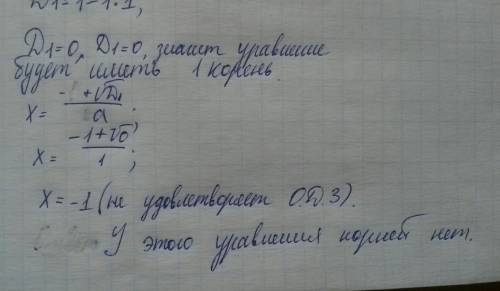 D1=1-1·1,
D1=0, D1=0, значит уравнение
будет иметь 1 корень.
x= -1+√D1 / a ;
x= -1+√0 / 1 ;
x=-1 (не удовлетворяет О.Д.З).
У этого уравнения корней нет.